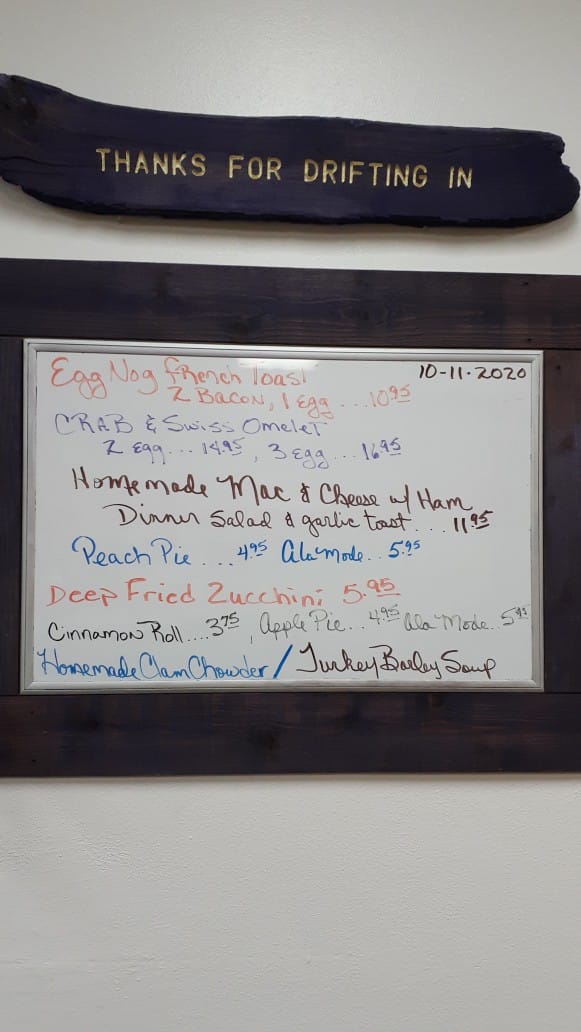 THANKS FOR DRIFTING IN
10-11-2020
Egg Nog French Toast
2 Bacon, 1 Egg ... 10.95
CRAB & Swiss Omelet
2 egg... 14.95, 3 egg... 16.95
Homemade Mac & Cheese w/ Ham
Dinner Salad & garlic toast... 11.95
Peach Pie .... 4.95 Ala Mode.. 5.95
Deep Fried Zucchini 5.95
Cinnamon Roll....3.75, Apple Pie.. 4.95 Ala Mode.. 5.95
Homemade Clam Chowder / Turkey Barley Soup